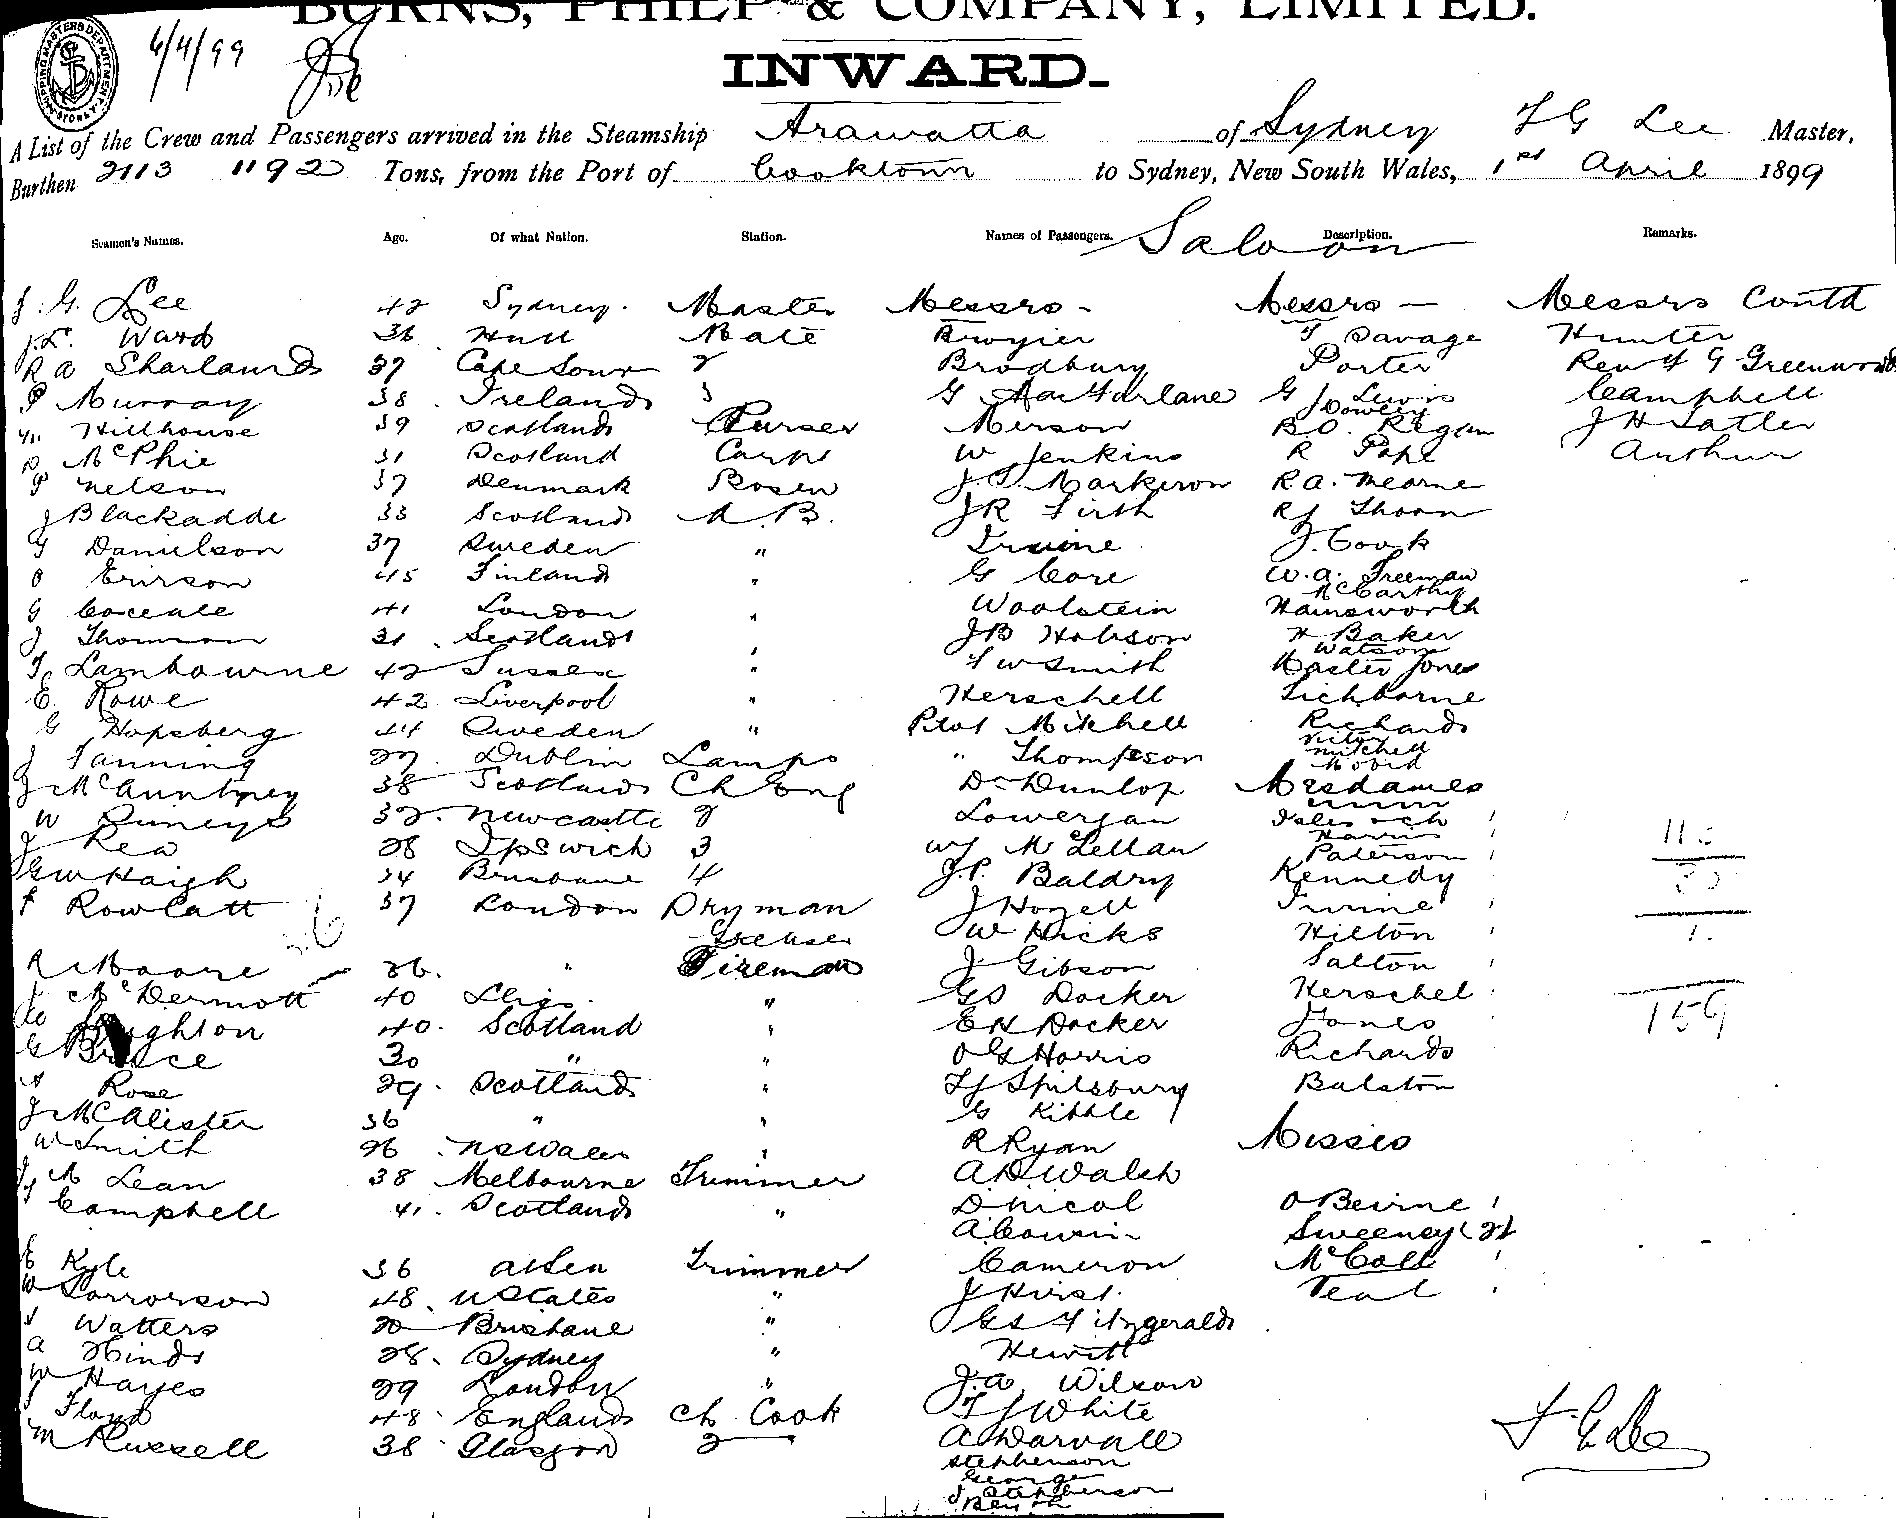 BURNS, PHILP & COMPANY, LIMITED.
6/4/99
INWARD.
A List of the Crew and Passengers arrived in the Steamship Arawatta of Sydney F G Lee Master,
Burthen 2113 1192 Tons, from the Port of Cooktown to Sydney, New South Wales, 1st April 1899
Seamen's Names. Age. Of what Nation. Station. Names of Passengers. Saloon Description. Remarks.
F. G. Lee 42 Sydney. Master Messrs - Messrs — Messrs Contd
Ward 36 Hull Mate Bowyier F Savage Hunter
R A Sharland 37 Cape Town 2 Bradbury Porter Rev F G Greenwood
P Murray 38 Ireland 3 G MacFarlane G Lewis Campbell
J Dowley
Hillhouse 39 Scotland Purser Merson R O. Regan J H Satler
D McPhie 31 Scotland Carpr W Jenkins R Pope Arthur
P Nelson 37 Denmark Bosen J S Markerow R A. Mearne
J Blackadde 33 Scotland A. B. J R Firth R J Thorn
G Danielson 37 Sweden " Irvine J. Cook
O Erirson 45 Finland " G Core W. A. Freeman
McCarthy
G 41 London " Woolstein Hainsworth
J Thomson 31 Scotland " J B Hobson H Baker
Watson
T. Lambourne 42 Sussex " F W Smith Master Jones
E. Rowe 42 Liverpool " Herschell Tichborne
G Hopsberg 44 Sweden " Pilot Mitchell Richards
Victor
J Fanning 27 Dublin Lamps " Thompson Mitchell
J McAuntney 38 Scotland Ch Eng Dr Dunlop Mesdames
W 32 Newcastle 2 Lowerjan
Harris
J Rea 28 Ipswich 3 W J McLellan Paterson
G W Haigh 34 Brisbane 4 J. P. Baldry Kennedy
F Rowlatt 37 London Dry man J Hozell Irvine
Greaser W Hicks Hilton
R Moore 26. " Fireman J Gibson Salton
J McDermott 40 Sligo " G S Docker Herschel
40. Scotland " E H Docker Jones
G Bruce 30 " " O G Harris Richards
Rose 29. Scotland " F J Spilsbury Balston
J McAlister 36 " " G Kibble
W Smith 26 N S Wales " R Ryan Misses
McLean 38 Melbourne Trimmer A D Walsh
Campbell 41. Scotland " D Nicol O Beirne
A Cowin Sweeney (2)
E Kyle 36 Trimmer Cameron McColl
W 48. U States " J Hirst. Teal
Watters 20 Brisbane " G S Fitzgerald
A Hinds 28. Sydney " Hewitt
W Hayes 29 London " J. A. Wilson
Floyd 48 England Ch Cook T J White
M Russell 38 Glasgow 2 A Darvall
Stephenson
George
J Stephenson
159
F. G Lee